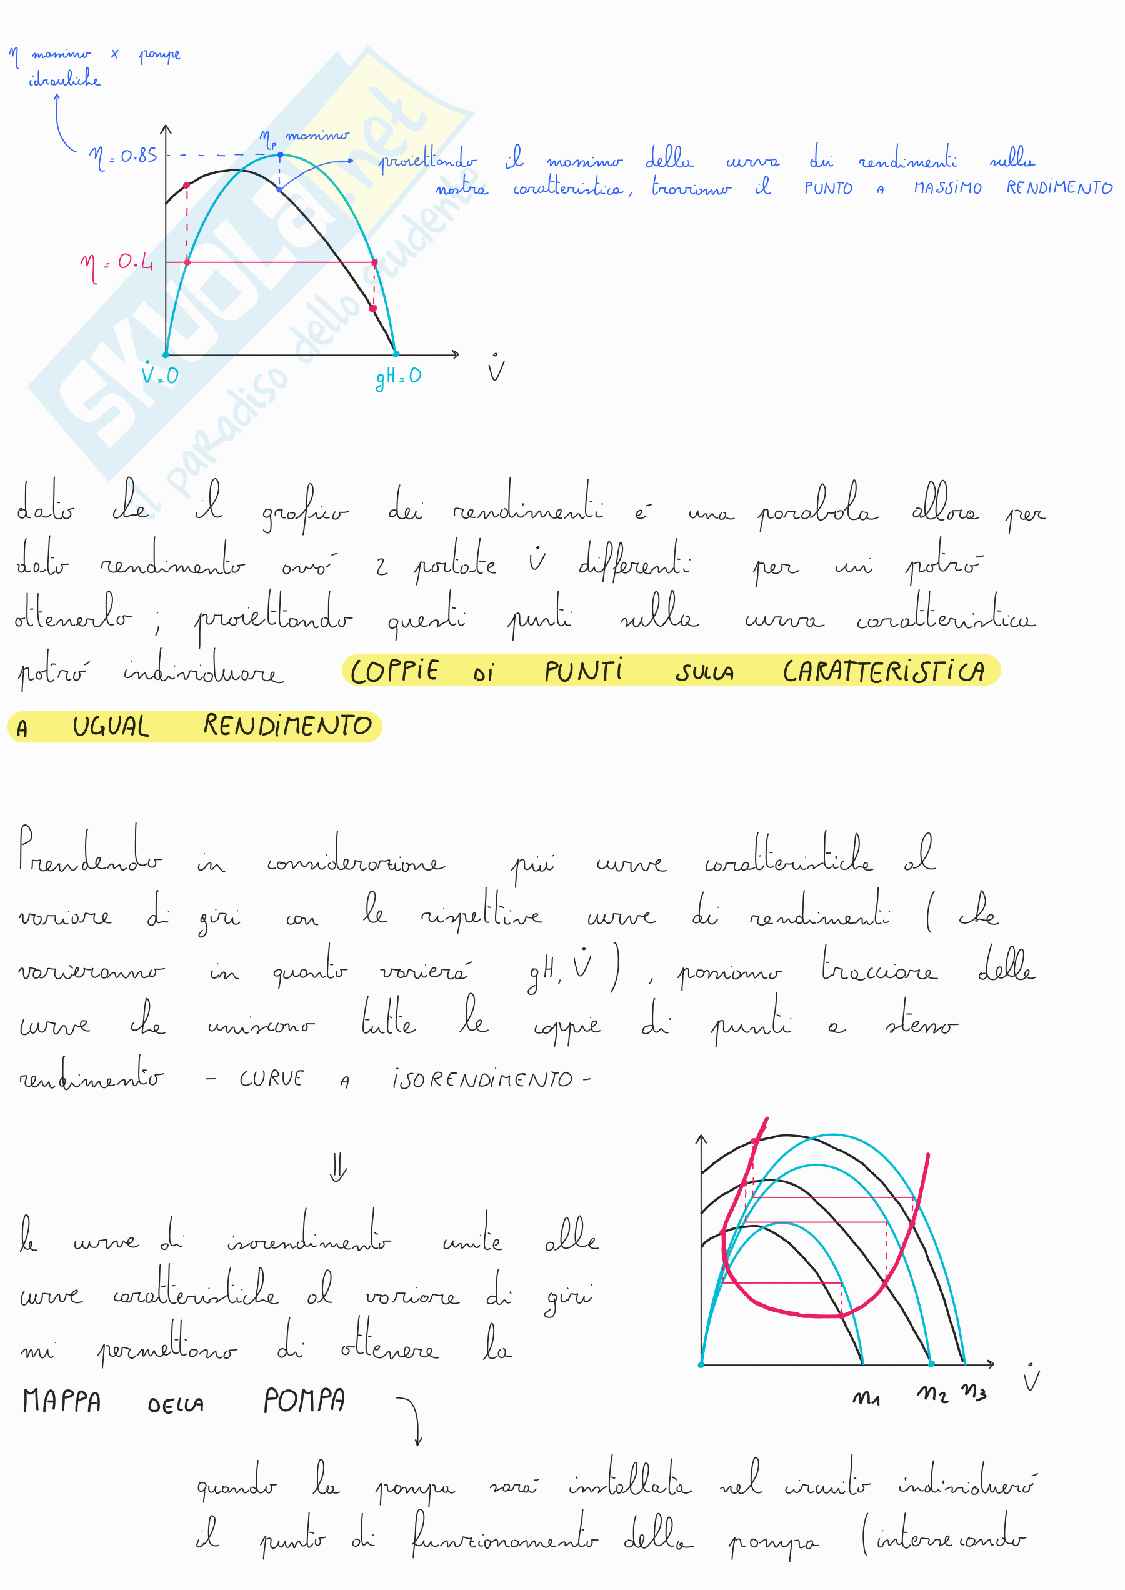 η massimo x pompe
idrauliche
η = 0.85
ηp massimo
proiettando il massimo della curva dei rendimenti sulla
nostra caratteristica, troviamo il PUNTO A MASSIMO RENDIMENTO
η = 0.4
V̇=0
gH=0
V̇
SKUOLA.net
il paradiso dello studente
dato che il grafico dei rendimenti é una parabola allora per
dato rendimento avró 2 portate V̇ differenti per cui potró
ottenerlo ; proiettando questi punti sulla curva caratteristica
potró individuare COPPIE di PUNTI SULLA CARATTERISTICA
A UGUAL RENDIMENTO
Prendendo in considerazione piú curve caratteristiche al
variare di giri con le rispettive curve di rendimenti ( che
varieranno in quanto varierá gH, V̇ ) , possiamo tracciare delle
curve che uniscono tutte le coppie di punti a stesso
rendimento - CURVE A ISORENDIMENTO -
⇓
le curve di isorendimento unite alle
curve caratteristiche al variare di giri
mi permettono di ottenere la
MAPPA DELLA POMPA
n1 n2 n3
V̇
quando la pompa sará installata nel circuito individueró
il punto di funzionamento della pompa ( intersecando